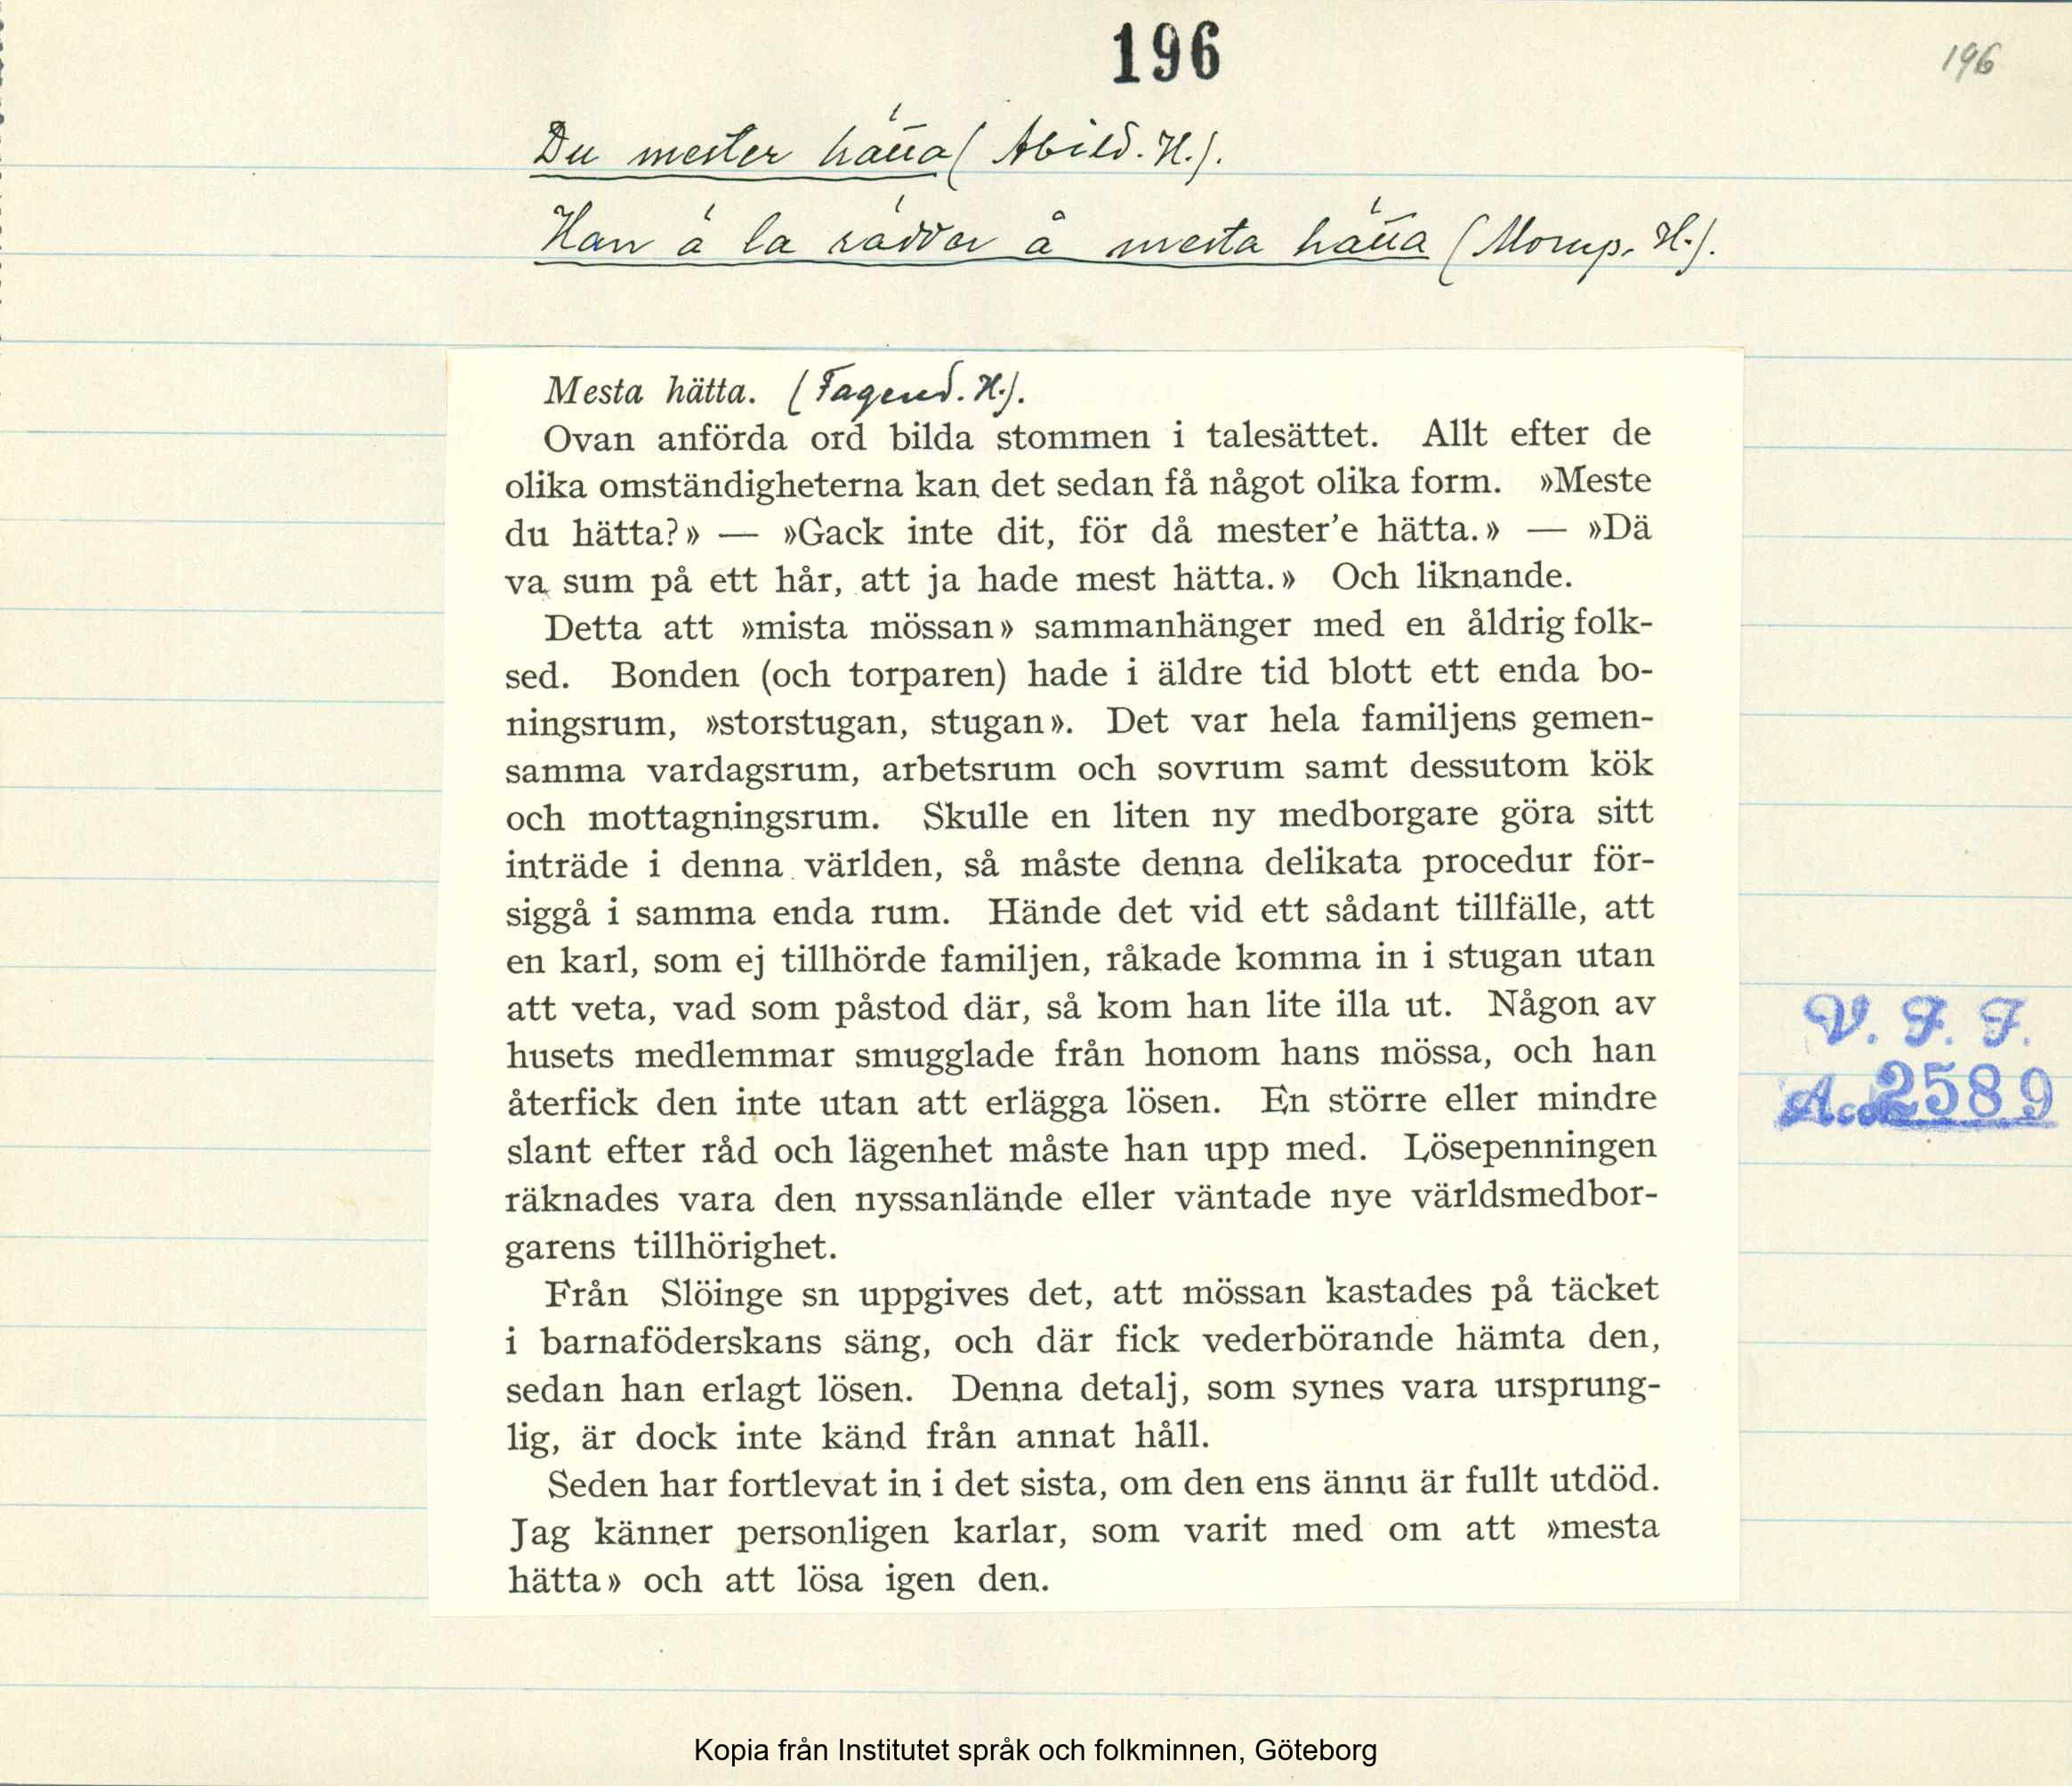 196
196
Du mester hätta (Abild. H.).
Han ä la rädder å mesta hätta (Morup. H.).
Mesta hätta. (Fagered. H.).
Ovan anförda ord bilda stommen i talesättet. Allt efter de
olika omständigheterna kan det sedan få något olika form. »Meste
du hätta?» — »Gack inte dit, för då mester'e hätta.» — »Dä
va sum på ett hår, att ja hade mest hätta.» Och liknande.
Detta att »mista mössan» sammanhänger med en åldrig folk-
sed. Bonden (och torparen) hade i äldre tid blott ett enda bo-
ningsrum, »storstugan, stugan». Det var hela familjens gemen-
samma vardagsrum, arbetsrum och sovrum samt dessutom kök
och mottagningsrum. Skulle en liten ny medborgare göra sitt
inträde i denna världen, så måste denna delikata procedur för-
siggå i samma enda rum. Hände det vid ett sådant tillfälle, att
en karl, som ej tillhörde familjen, råkade komma in i stugan utan
att veta, vad som påstod där, så kom han lite illa ut. Någon av
husets medlemmar smugglade från honom hans mössa, och han
återfick den inte utan att erlägga lösen. En större eller mindre
slant efter råd och lägenhet måste han upp med. Lösepenningen
räknades vara den nyssanlände eller väntade nye världsmedbor-
garens tillhörighet.
Från Slöinge sn uppgives det, att mössan kastades på täcket
i barnaföderskans säng, och där fick vederbörande hämta den,
sedan han erlagt lösen. Denna detalj, som synes vara ursprung-
lig, är dock inte känd från annat håll.
Seden har fortlevat in i det sista, om den ens ännu är fullt utdöd.
Jag känner personligen karlar, som varit med om att »mesta
hätta» och att lösa igen den.
V. F. F.
Acc. 2589
Kopia från Institutet språk och folkminnen, Göteborg